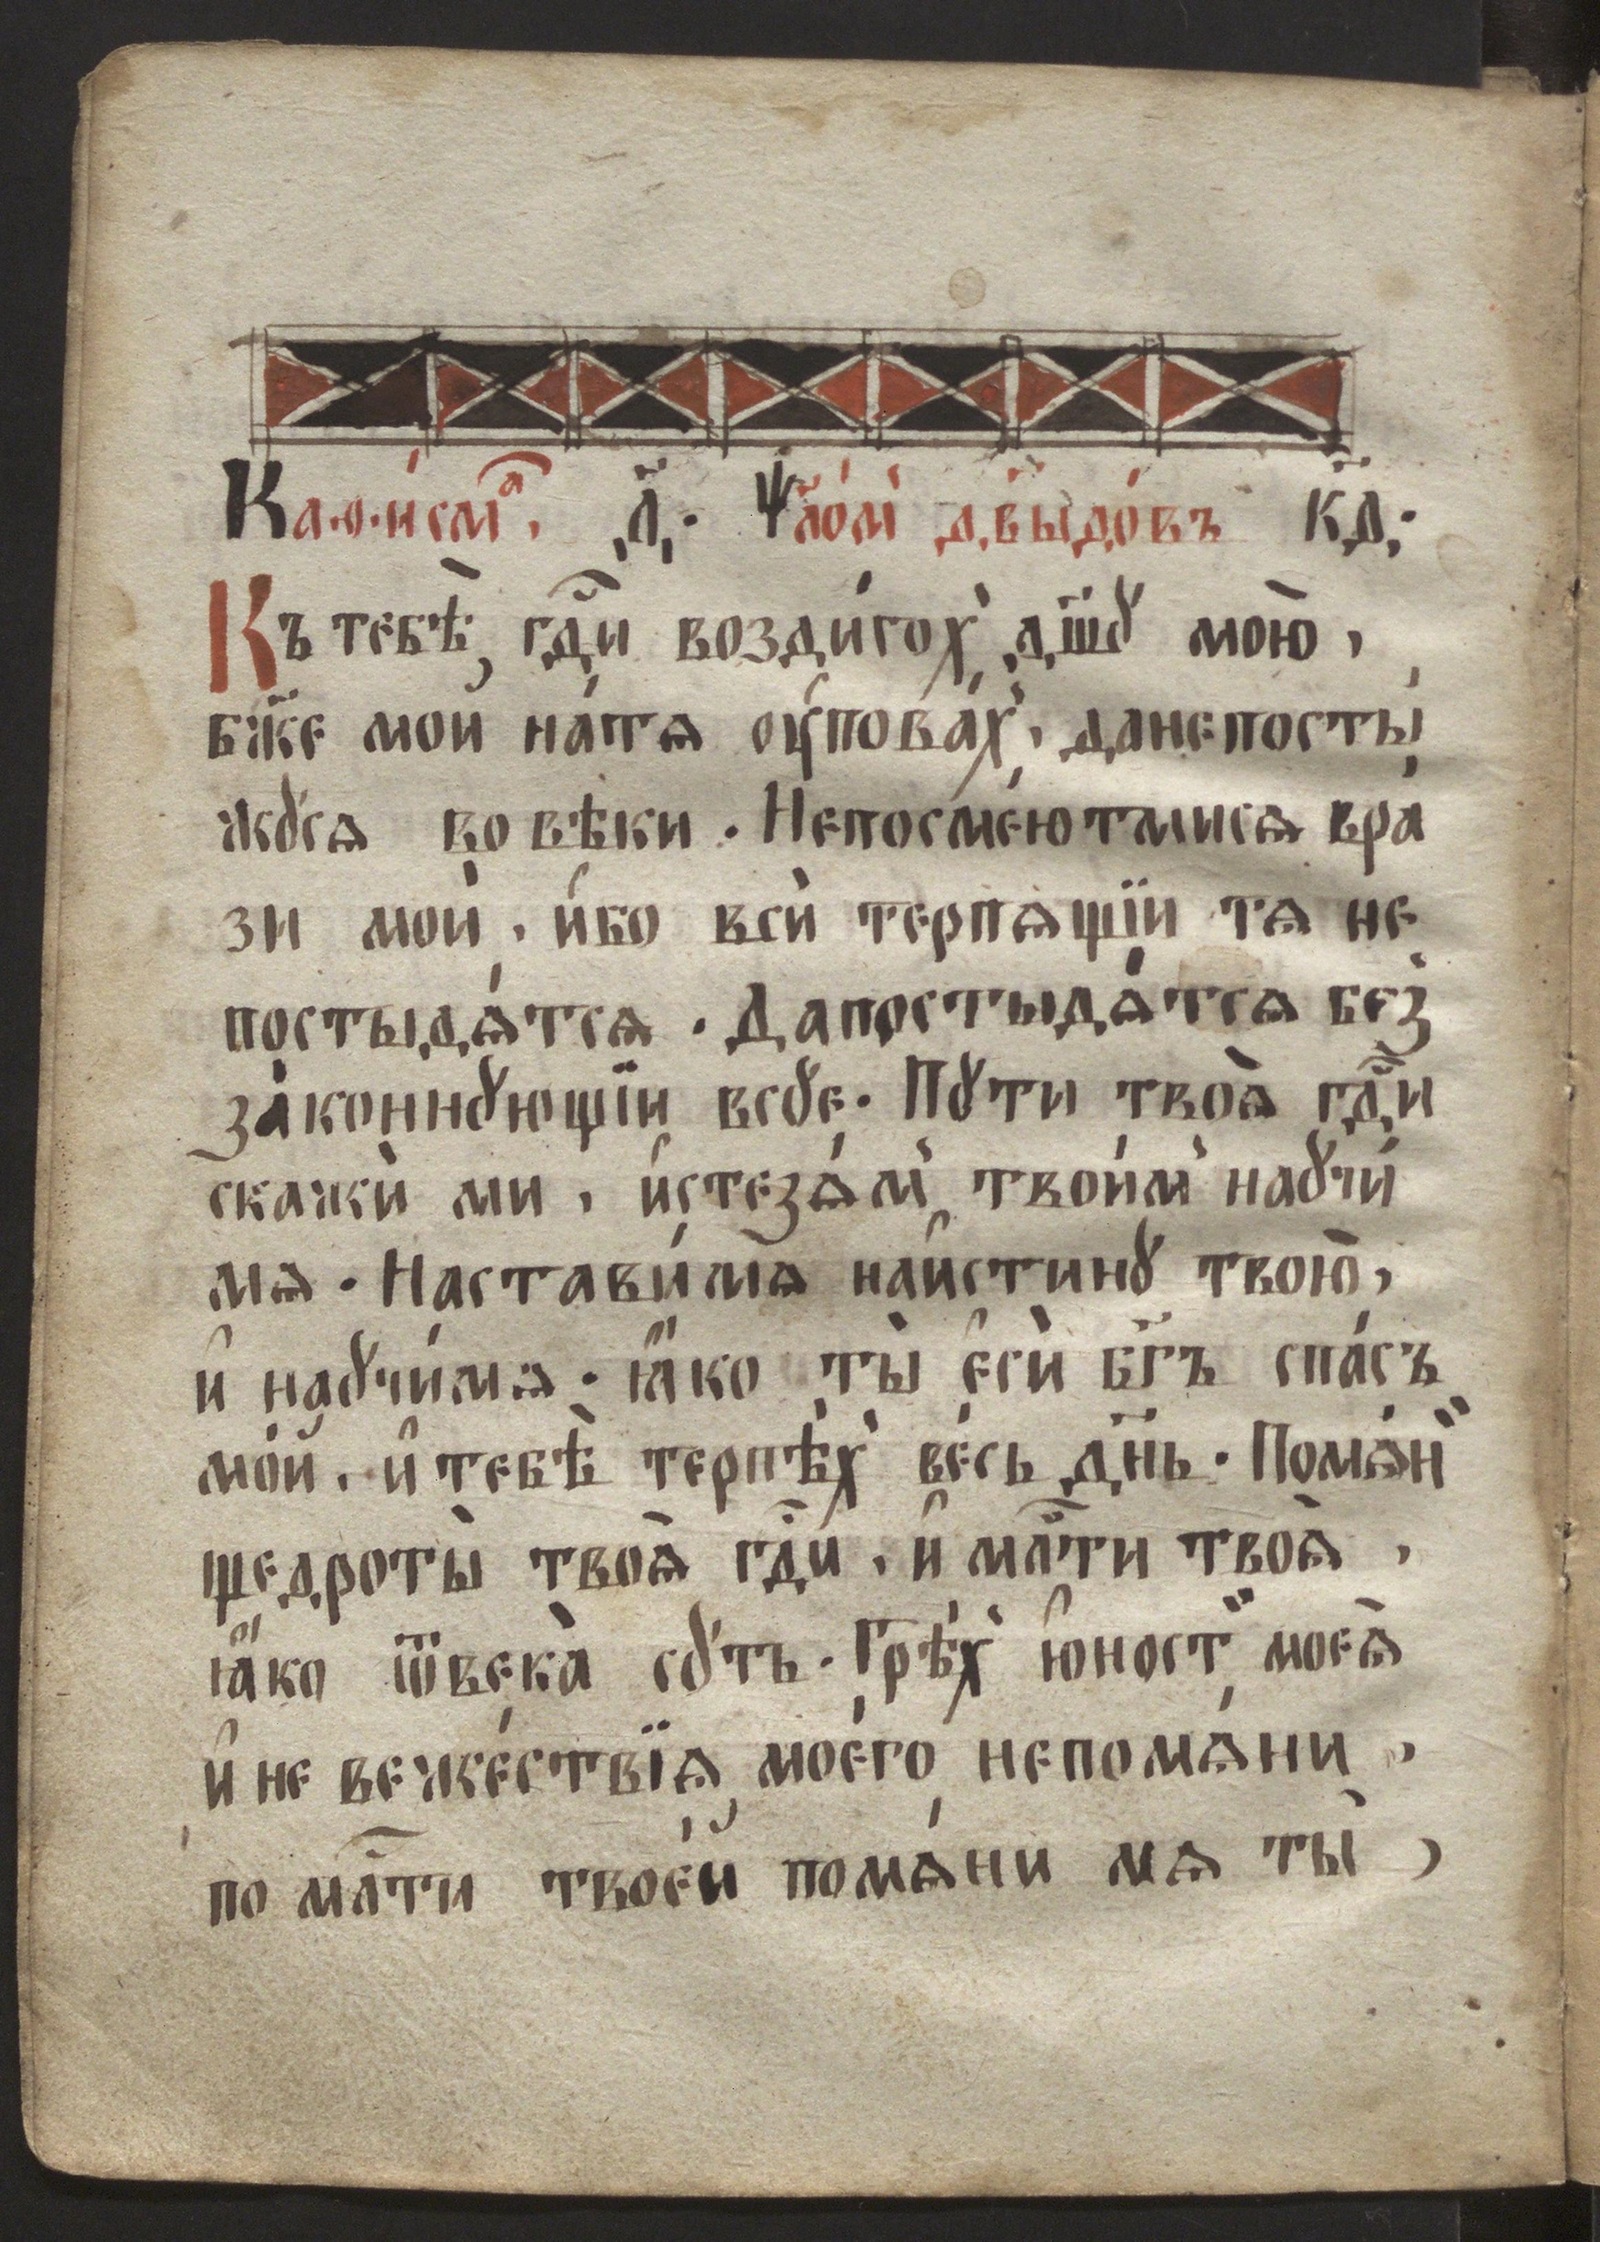 Каѳи́смⷶ, д҃· Ѱло́м̾ дв҃ыдо́въ к҃д·
Къ тебѣ̀, гд҃и воздви́гох̾ дш҃ꙋ мою̀,
бж҃е мой на́тѧ ᲂу҆пова́х̾, данепосты
жꙋ́сѧ во вѣ́ки. Непосмею́тмисѧ вра́
зи моѝ, и҆́бо всѝ терпѧщїи тѧ не
постыдѧ́тсѧ. Дапостыдѧ́тсѧ без̾
зако́ннꙋющїи всꙋ́е. Пꙋти́ твоѧ̀ гд҃и
скажѝ ми, и҆стезѧ́м̾ твои́м̾ наꙋчи́
мѧ. Настави́мѧ наи́стинꙋ твою̀,
и҆ наꙋчи́мѧ. ꙗ҆́ко ты̀ є҆сѝ бг҃ъ спа́съ
мо́й, и҆ тебѣ̀ терпѣ́х̾ ве́сь дн҃ь. Помѧн̾
щедроты̀ твоѧ̀ гд҃и, и҆ мл҃ти твоѧ̀,
ꙗ҆́ко ѿвека̀ сꙋ́ть. Грѣ́х̾ ю҆́ност̾ моеѧ̀
и҆ не веже́ствїѧ моего̀ непомѧнѝ,
по мл҃ти твое́й помѧни́ мѧ ты̀,